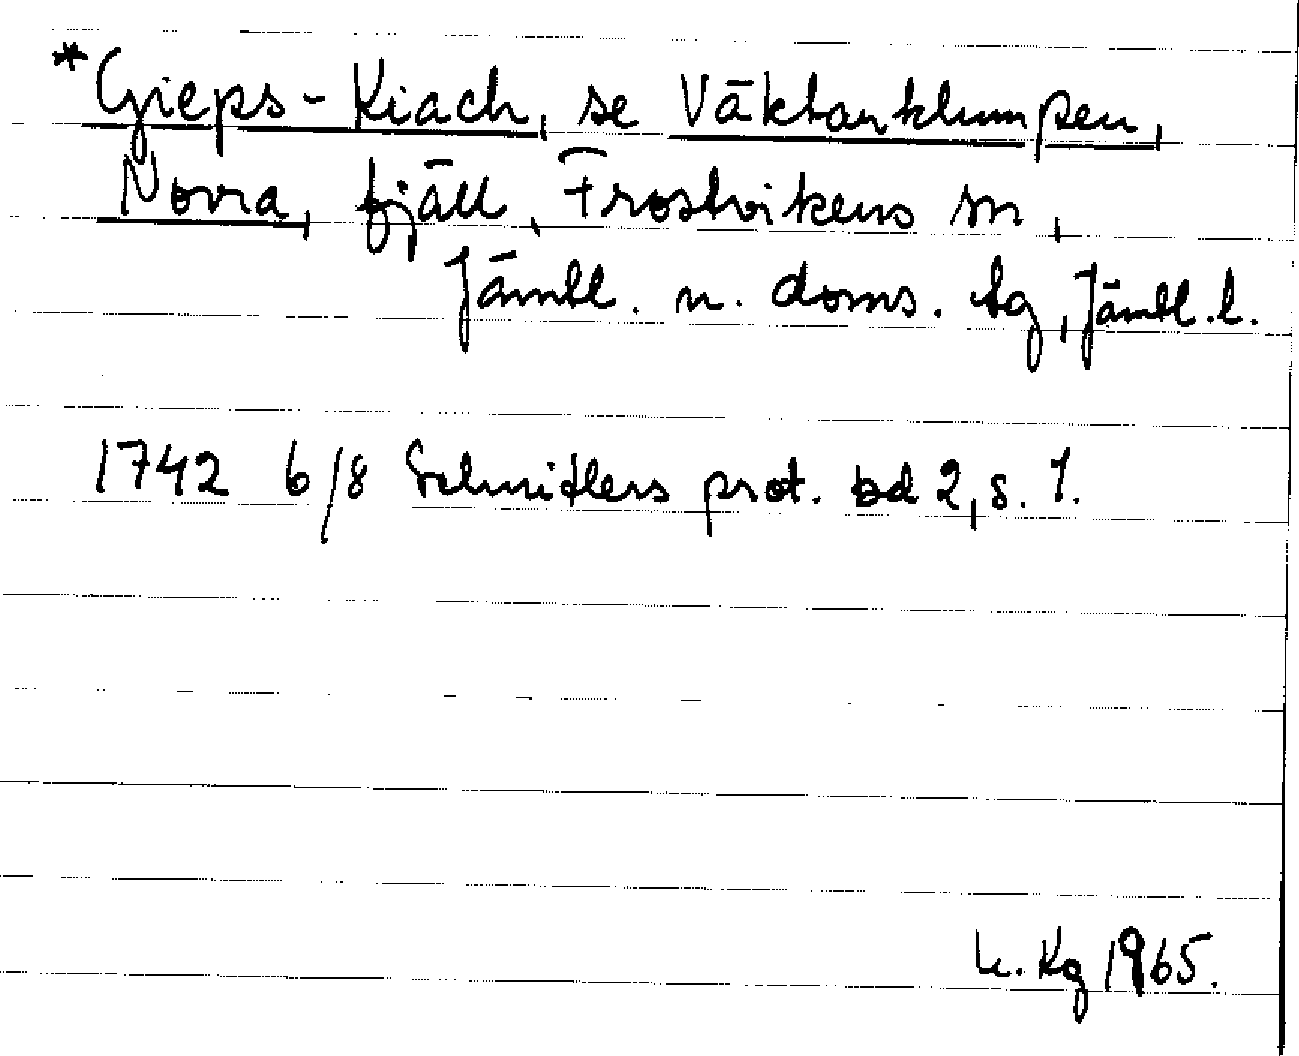 *Gieps-Kiach, se Väktarklumpen,
Norra, fjäll, Frostvikens sn,
Jämtl. n. doms. tg, Jämtl. l.
1742 6/8 Schnitlers prot. bd 2, s. 1.
Kg 1965.